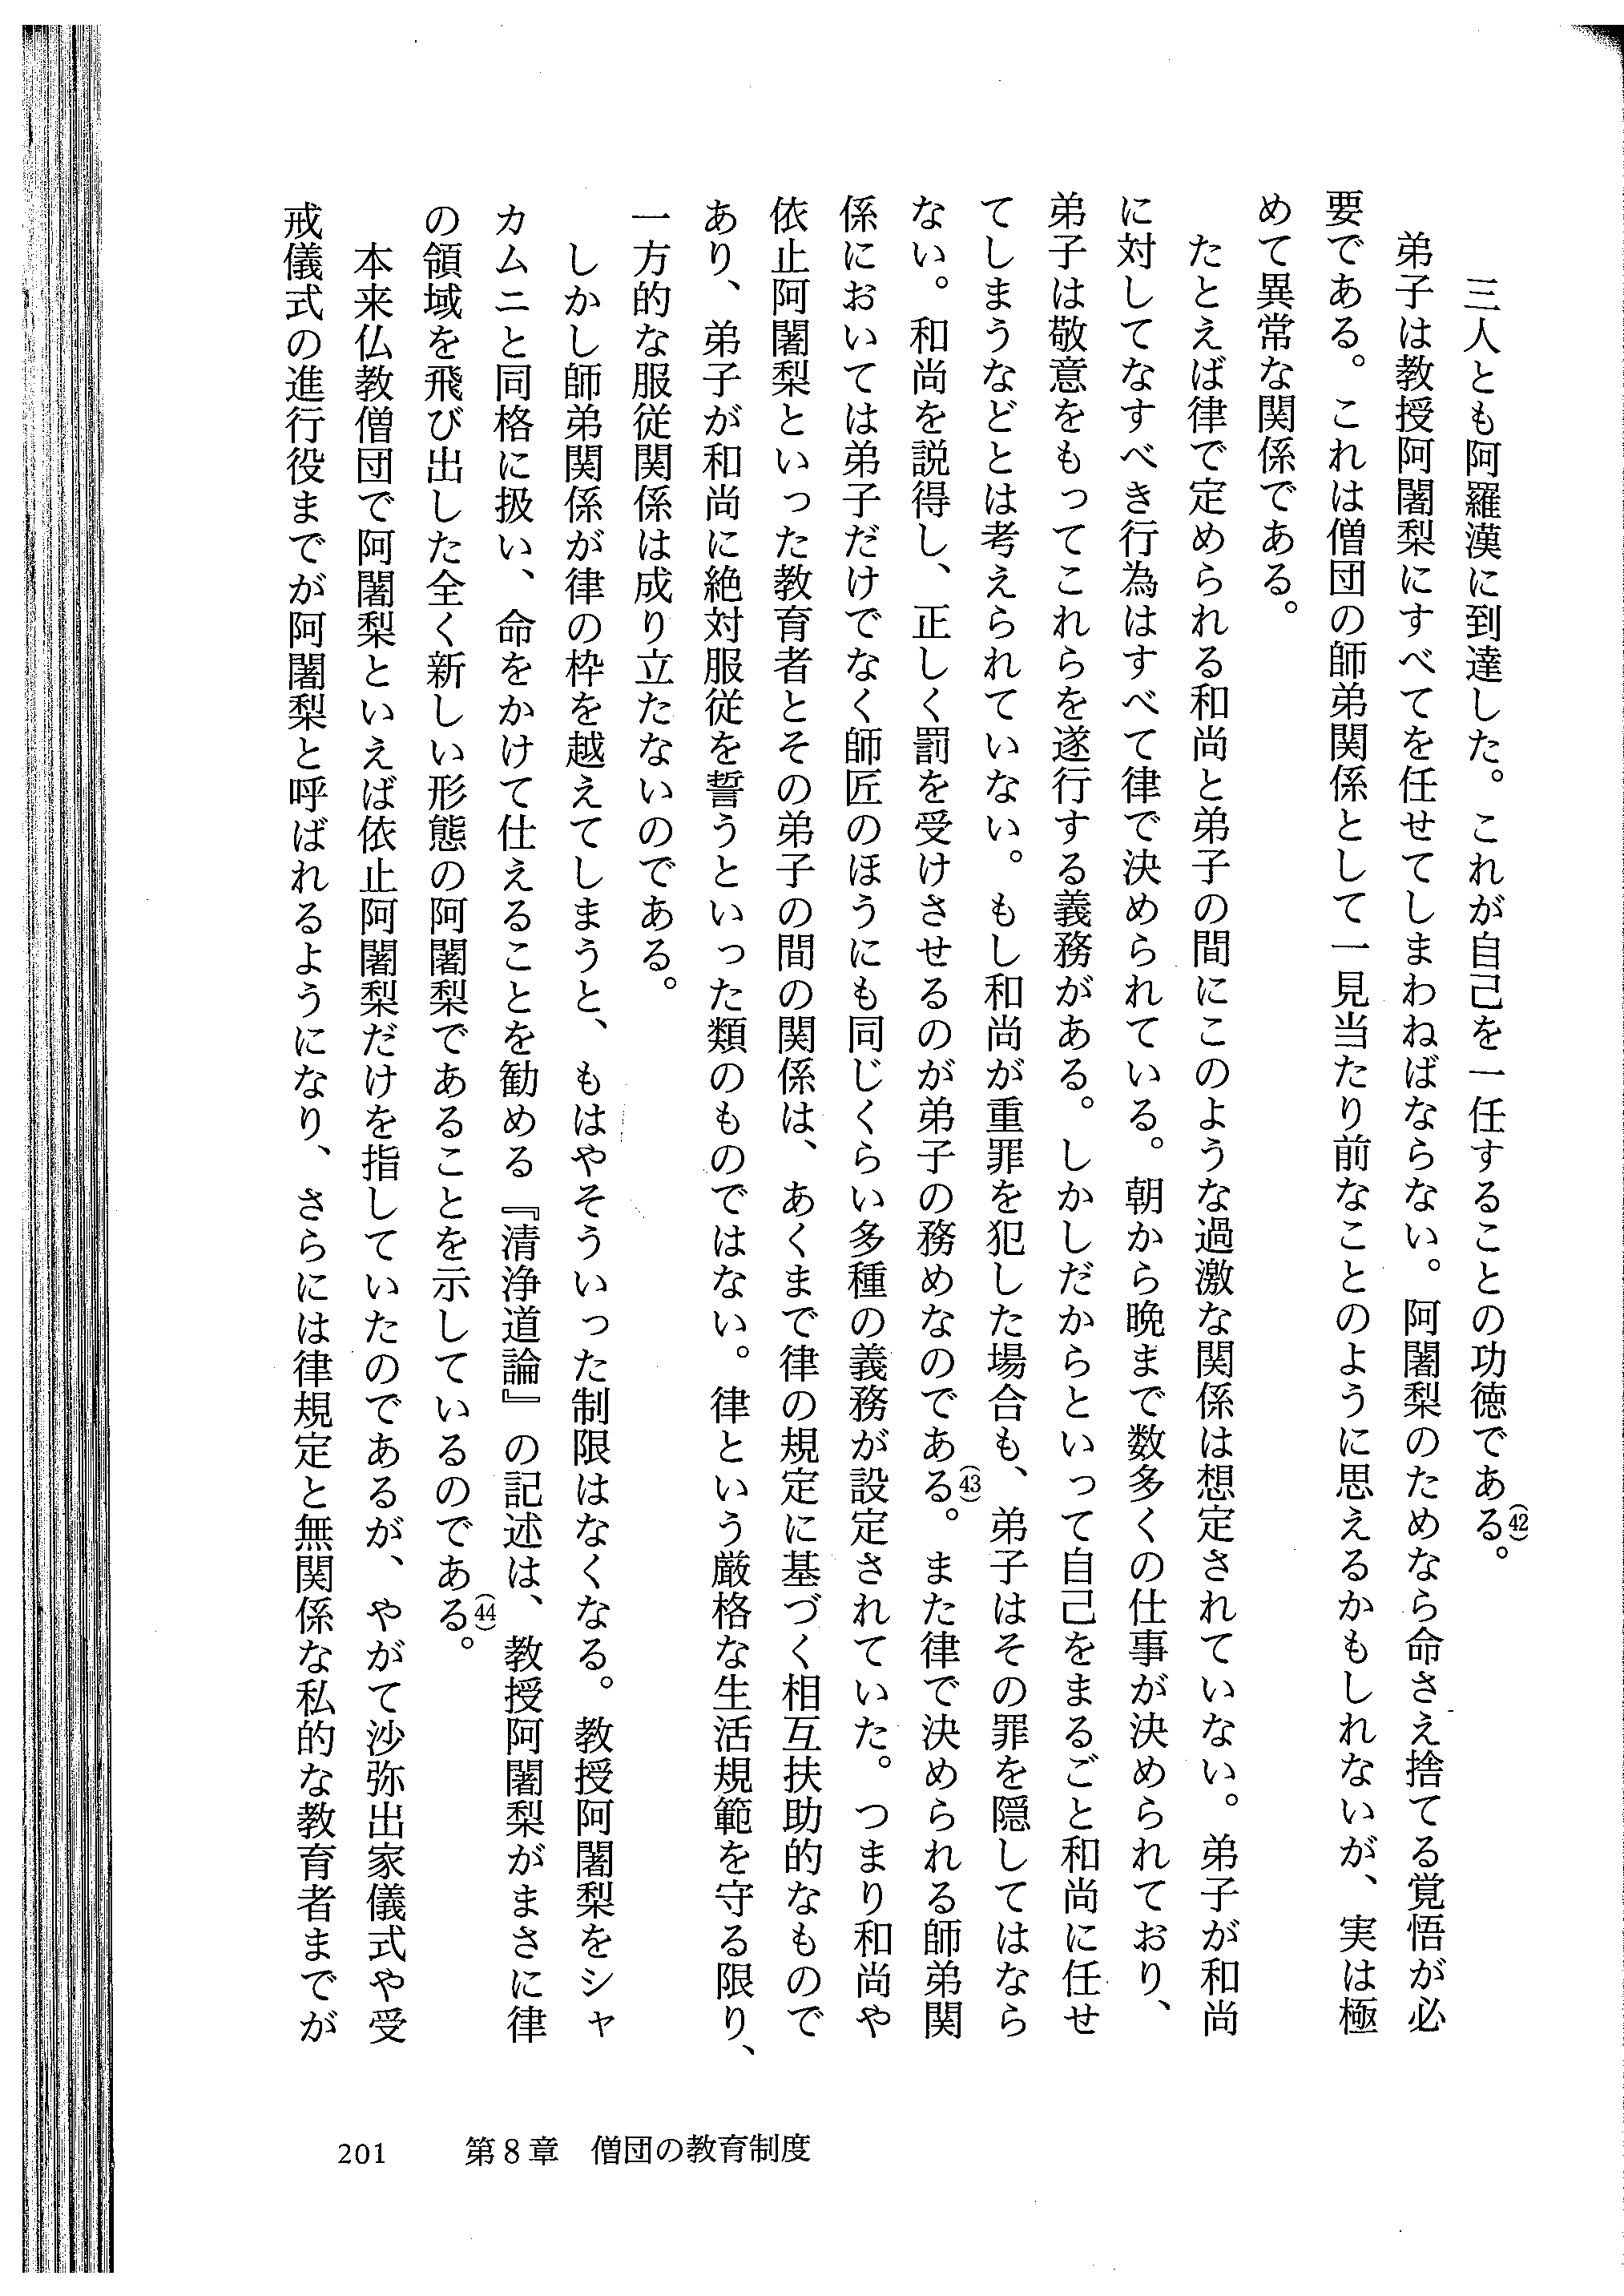 三人とも阿羅漢に到達した。これが自己を一任することの功徳である(42)。
弟子は教授阿闍梨にすべてを任せてしまわねばならない。阿闍梨のためなら命さえ捨てる覚悟が必
要である。これは僧団の師弟関係として一見当たり前なことのように思えるかもしれないが、実は極
めて異常な関係である。
たとえば律で定められる和尚と弟子の間にこのような過激な関係は想定されていない。弟子が和尚
に対してなすべき行為はすべて律で決められている。朝から晩まで数多くの仕事が決められており、
弟子は敬意をもってこれらを遂行する義務がある。しかしだからといって自己をまるごと和尚に任せ
てしまうなどとは考えられていない。もし和尚が重罪を犯した場合も、弟子はその罪を隠してはなら
ない。和尚を説得し、正しく罰を受けさせるのが弟子の務めなのである(43)。また律で決められる師弟関
係においては弟子だけでなく師匠のほうにも同じくらい多種の義務が設定されていた。つまり和尚や
依止阿闍梨といった教育者とその弟子の間の関係は、あくまで律の規定に基づく相互扶助的なもので
あり、弟子が和尚に絶対服従を誓うといった類のものではない。律という厳格な生活規範を守る限り、
一方的な服従関係は成り立たないのである。
しかし師弟関係が律の枠を越えてしまうと、もはやそういった制限はなくなる。教授阿闍梨をシャ
カムニと同格に扱い、命をかけて仕えることを勧める『清浄道論』の記述は、教授阿闍梨がまさに律
の領域を飛び出した全く新しい形態の阿闍梨であることを示しているのである(44)。
本来仏教僧団で阿闍梨といえば依止阿闍梨だけを指していたのであるが、やがて沙弥出家儀式や受
戒儀式の進行役までが阿闍梨と呼ばれるようになり、さらには律規定と無関係な私的な教育者までが
201　第8章　僧団の教育制度